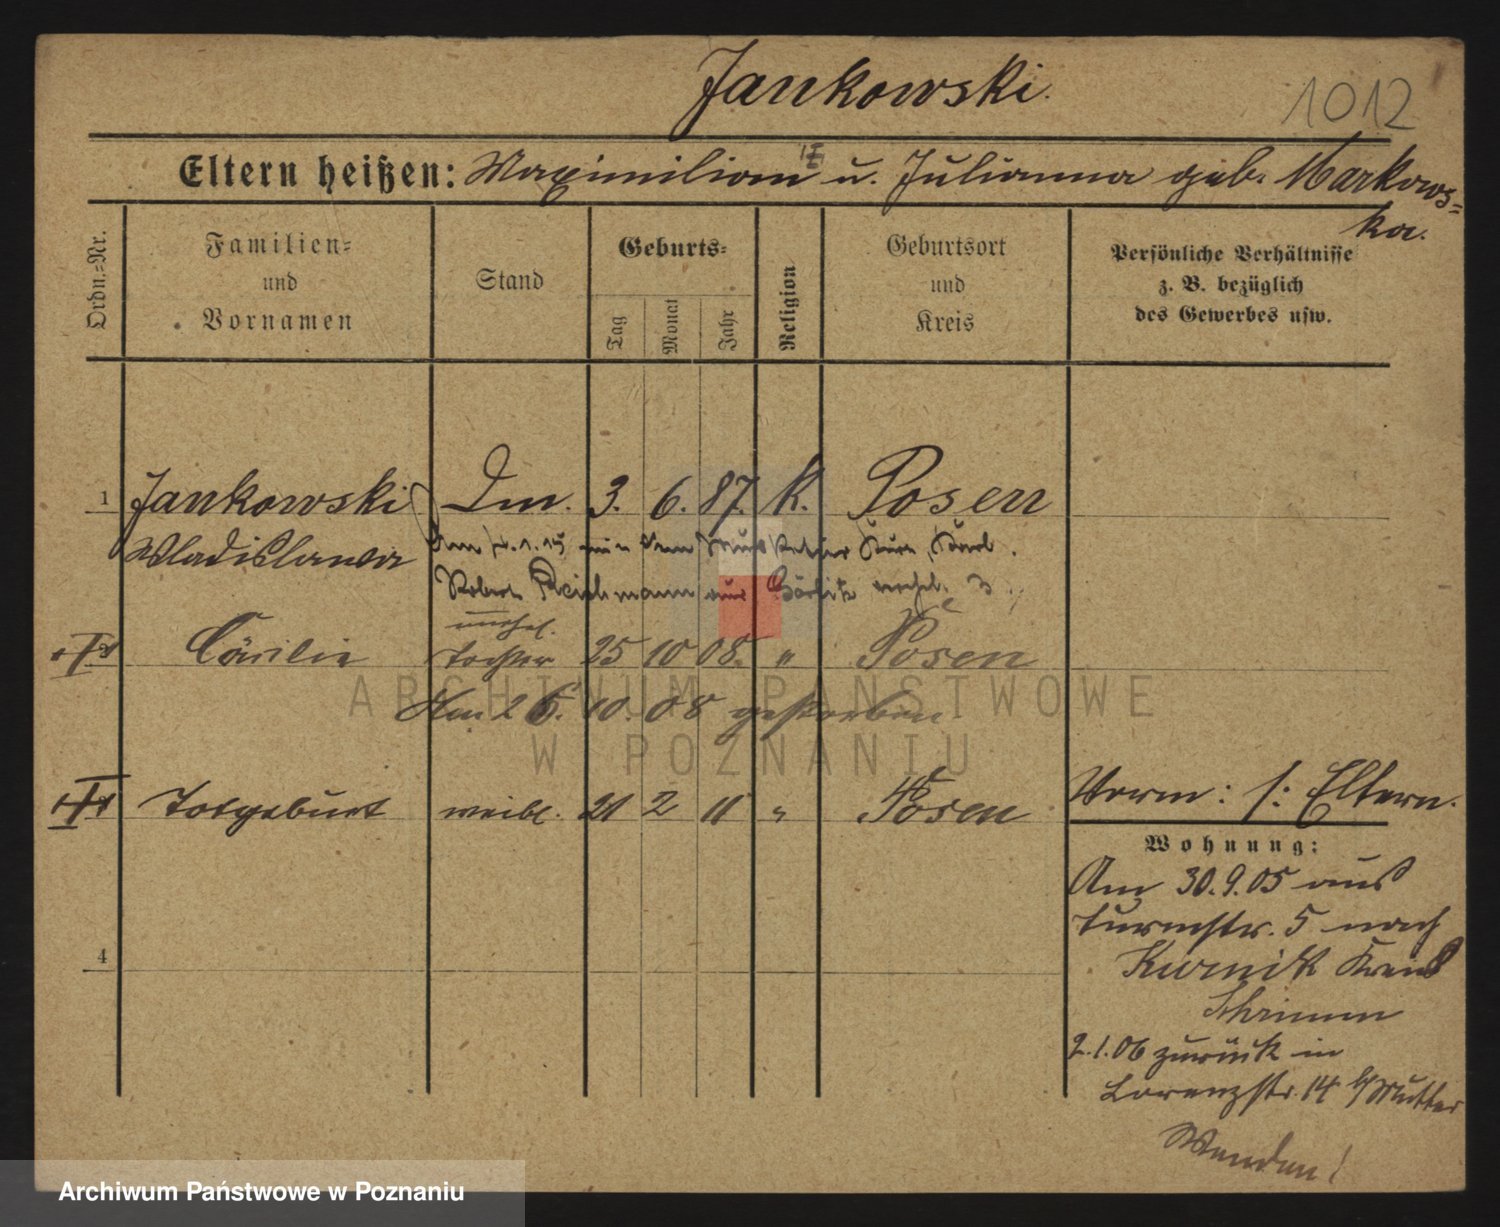 Jankowski.
1012
Eltern heißen: Maximilian u. Julianna geb. Markows=
ka.
Ordn.=Nr.
Familien=
und
Vornamen
Stand
Geburts=
Tag
Monat
Jahr
Religion
Geburtsort
und
Kreis
Persönliche Verhältnisse
z. B. bezüglich
des Gewerbes usw.
1 Jankowski Dm. 3. 6. 87. K. Posen
Wladislawa Am 1.15 mit dem Musketier Kurt, Karl
Robert Reichmann aus Görlitz verhel.
unehel.
Cäcilie Tochter 25 10 08. " Posen
Am 26. 10. 08 gestorben
Totgeburt weibl. 21 2 11 " Posen
Vorm: s: Eltern.
Wohnung:
Am 30.9.05 aus
Turmstr. 5 nach
Kurnik Kreis
Schrimm
2.1.06 zurück in
Lorenzstr. 14 b/Mutter
Wenden!
4
ARCHIWUM PAŃSTWOWE
W POZNANIU
Archiwum Państwowe w Poznaniu